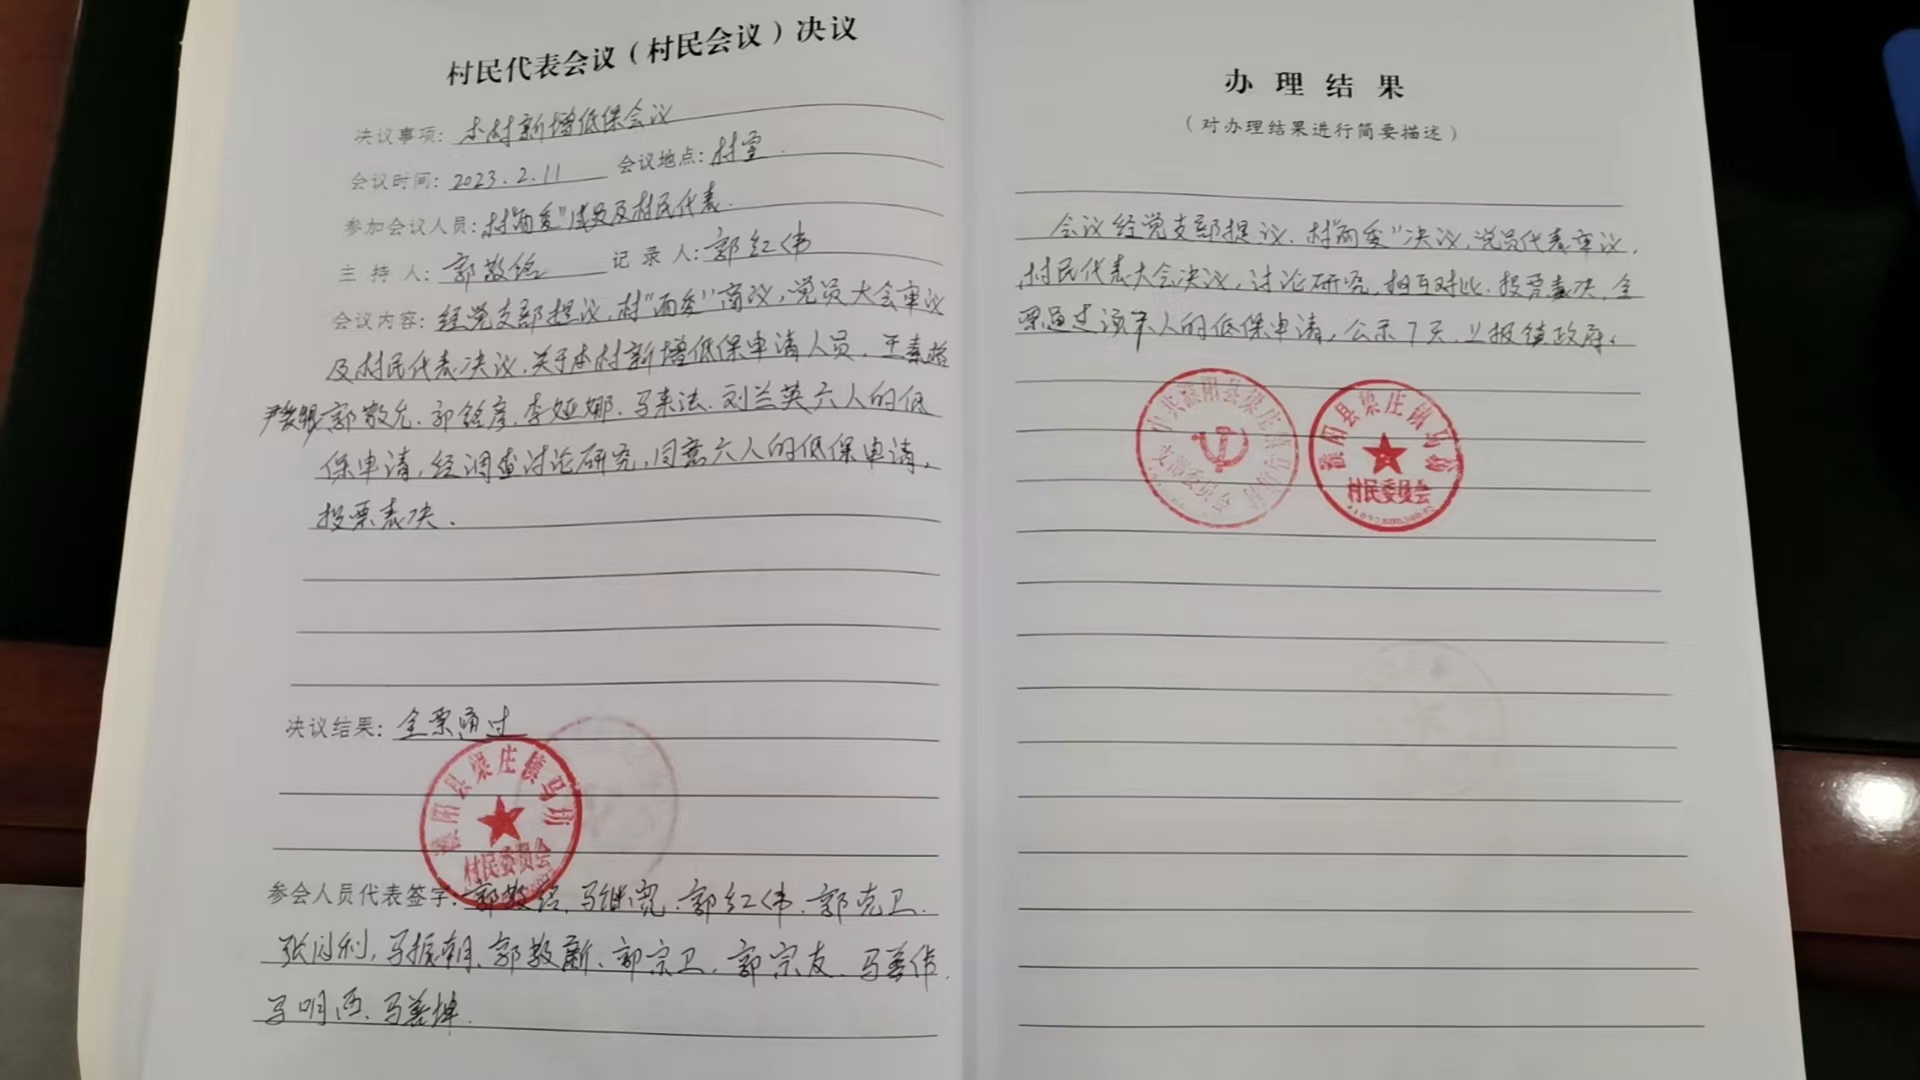 村民代表会议（村民会议）决议
决议事项：本村新增低保会议
会议时间：2023.2.11 会议地点：村室.
参加会议人员：村“两委”成员及村民代表.
主 持 人：郭敬 记 录 人：郭红伟
会议内容：经党支部提议，村“两委”商议，党员大会审议
及村民代表决议，关于本村新增低保申请人员，王素
郭敬允、郭铭彦、李娅娜、马来法、刘兰英六人的低
保申请，经调查讨论研究，同意六人的低保申请，
投票表决.
决议结果：全票通过
濮阳县梁庄镇马坊
村民委员会
参会人员代表签字：郭敬、马继宽、郭红伟、郭克卫.
张利，马振朝、郭敬新、郭宗卫，郭宗友、马善
马明西、马善坤.
办 理 结 果
（对办理结果进行简要描述）
会议经党支部提议、村“两委”决议，党员代表审议，
村民代表大会决议，讨论研究，相互对比，投票表决，全
票通过该人的低保申请，公示7天，上报镇政府.
中共濮阳县梁庄镇马坊村
支部委员会
濮阳县梁庄镇马坊
村民委员会